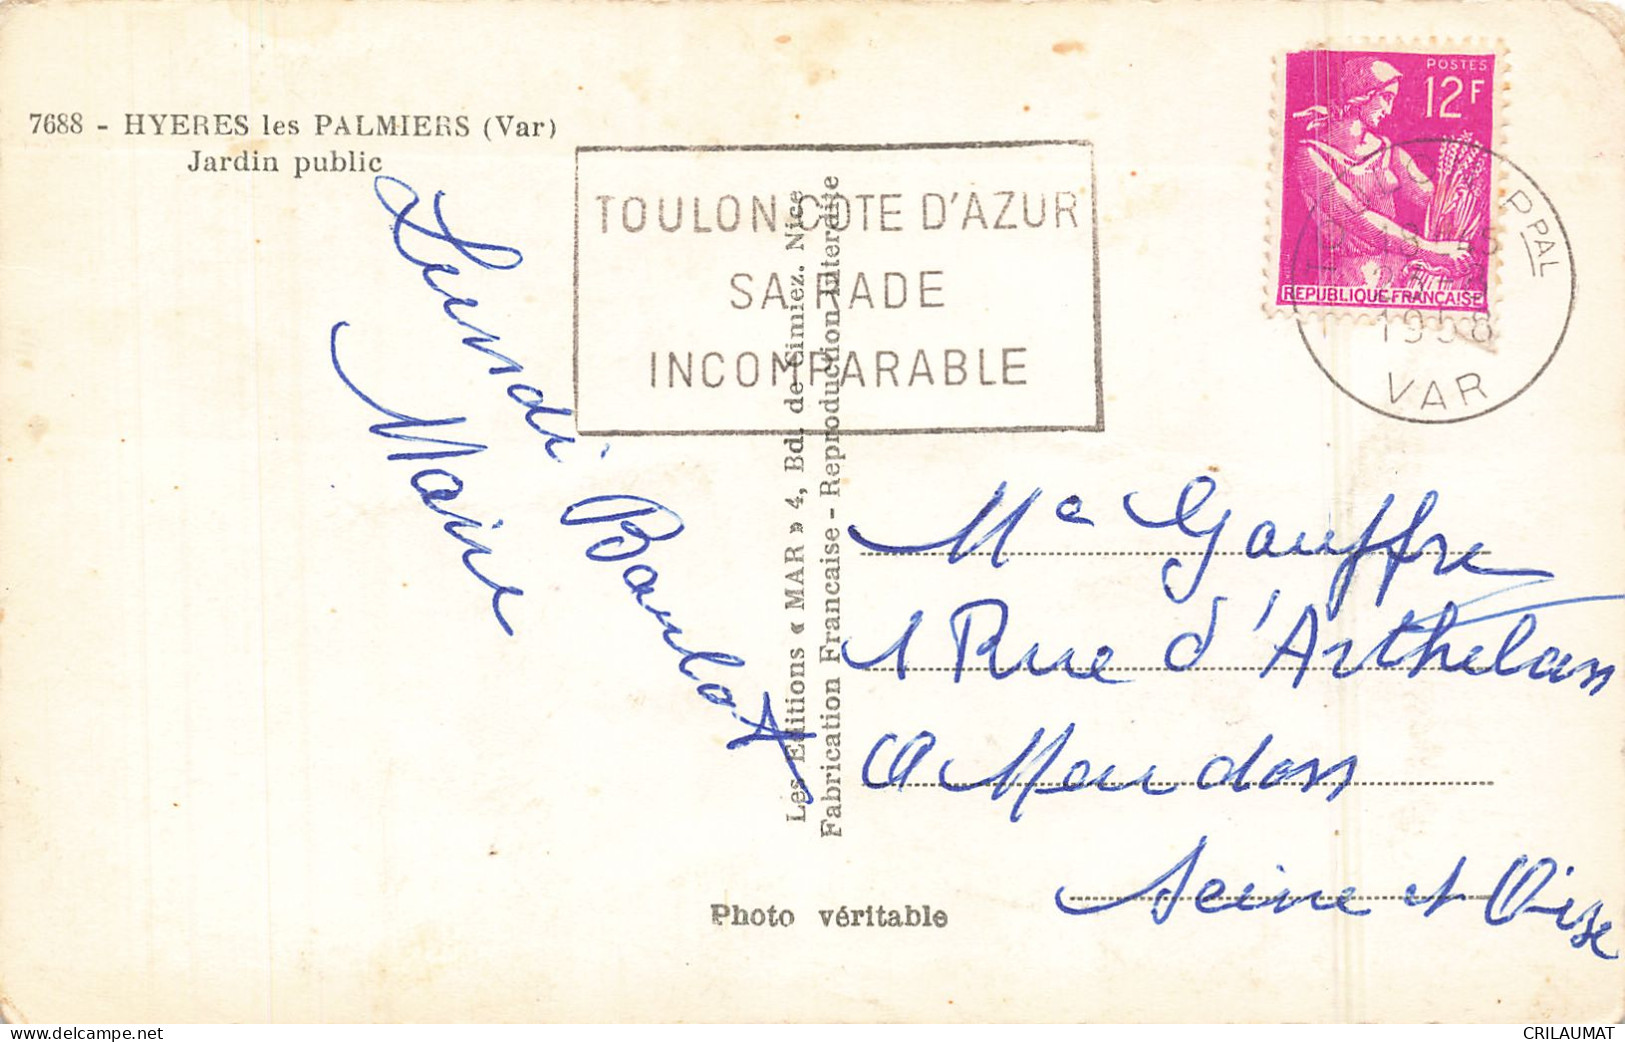 7688 - HYERES les PALMIERS (Var)
Jardin public
TOULON COTE D'AZUR
SA RADE
INCOMPARABLE
POSTES
12F
REPUBLIQUE FRANÇAISE
PPAL
1958
VAR
Les Editions « MAR » 4, Bd. de Cimiez. Nice
Fabrication Francaise - Reproduction Interdite
Lundi
Marie Baulot
Me Gauffre
1 Rue d'Arthelon
A Meudon
Seine et Oise
Photo véritable
www.delcampe.net
CRILAUMAT